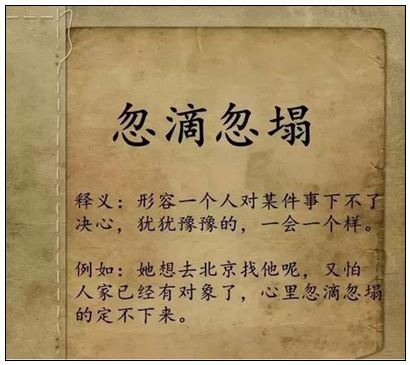 忽滴忽塌
释义：形容一个人对某件事下不了
决心，犹犹豫豫的，一会一个样。
例如：她想去北京找他呢，又怕
人家已经有对象了，心里忽滴忽塌
的定不下来。